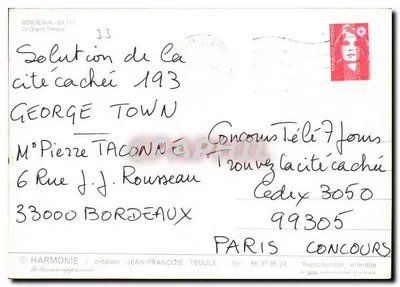 BORDEAUX - BX 117
Le Grand Théâtre
33
Solution de la
cité cachée 193
GEORGE TOWN
Mr Pierre TACONNÉ
6 Rue J. J. Rousseau
33000 BORDEAUX
Concours Télé 7 Jours
Trouvez la cité cachée
Cedex 3050
99305
PARIS CONCOURS
© HARMONIE - création JEAN-FRANÇOIS TEOULÉ - tél. 56 37 95 24 - Reproduction interdite